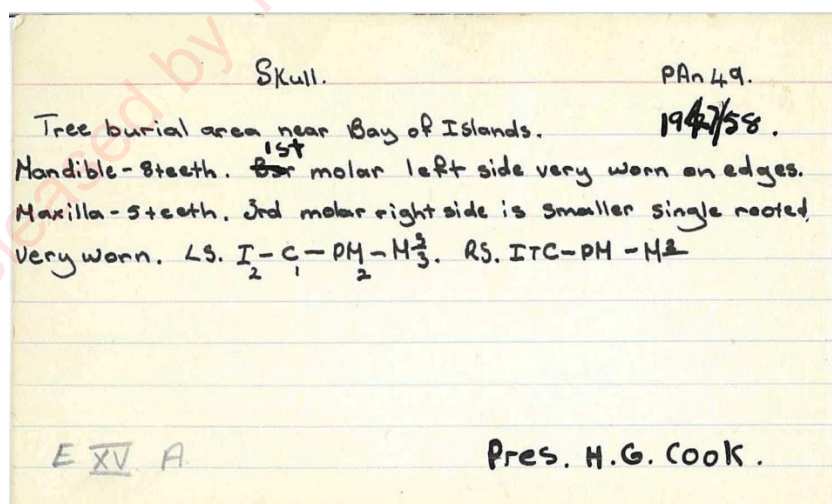 Skull.
PAn 49.
Tree burial area near Bay of Islands.
1947/58.
1st
Mandible - 8 teeth. molar left side very worn on edges.
Maxilla - 5 teeth. 3rd molar right side is smaller single rooted,
very worn. LS. I - C - PM - M 3/3. RS. I C - PM - M
2 1 2
E XV A
Pres. H.G. Cook.
eased by